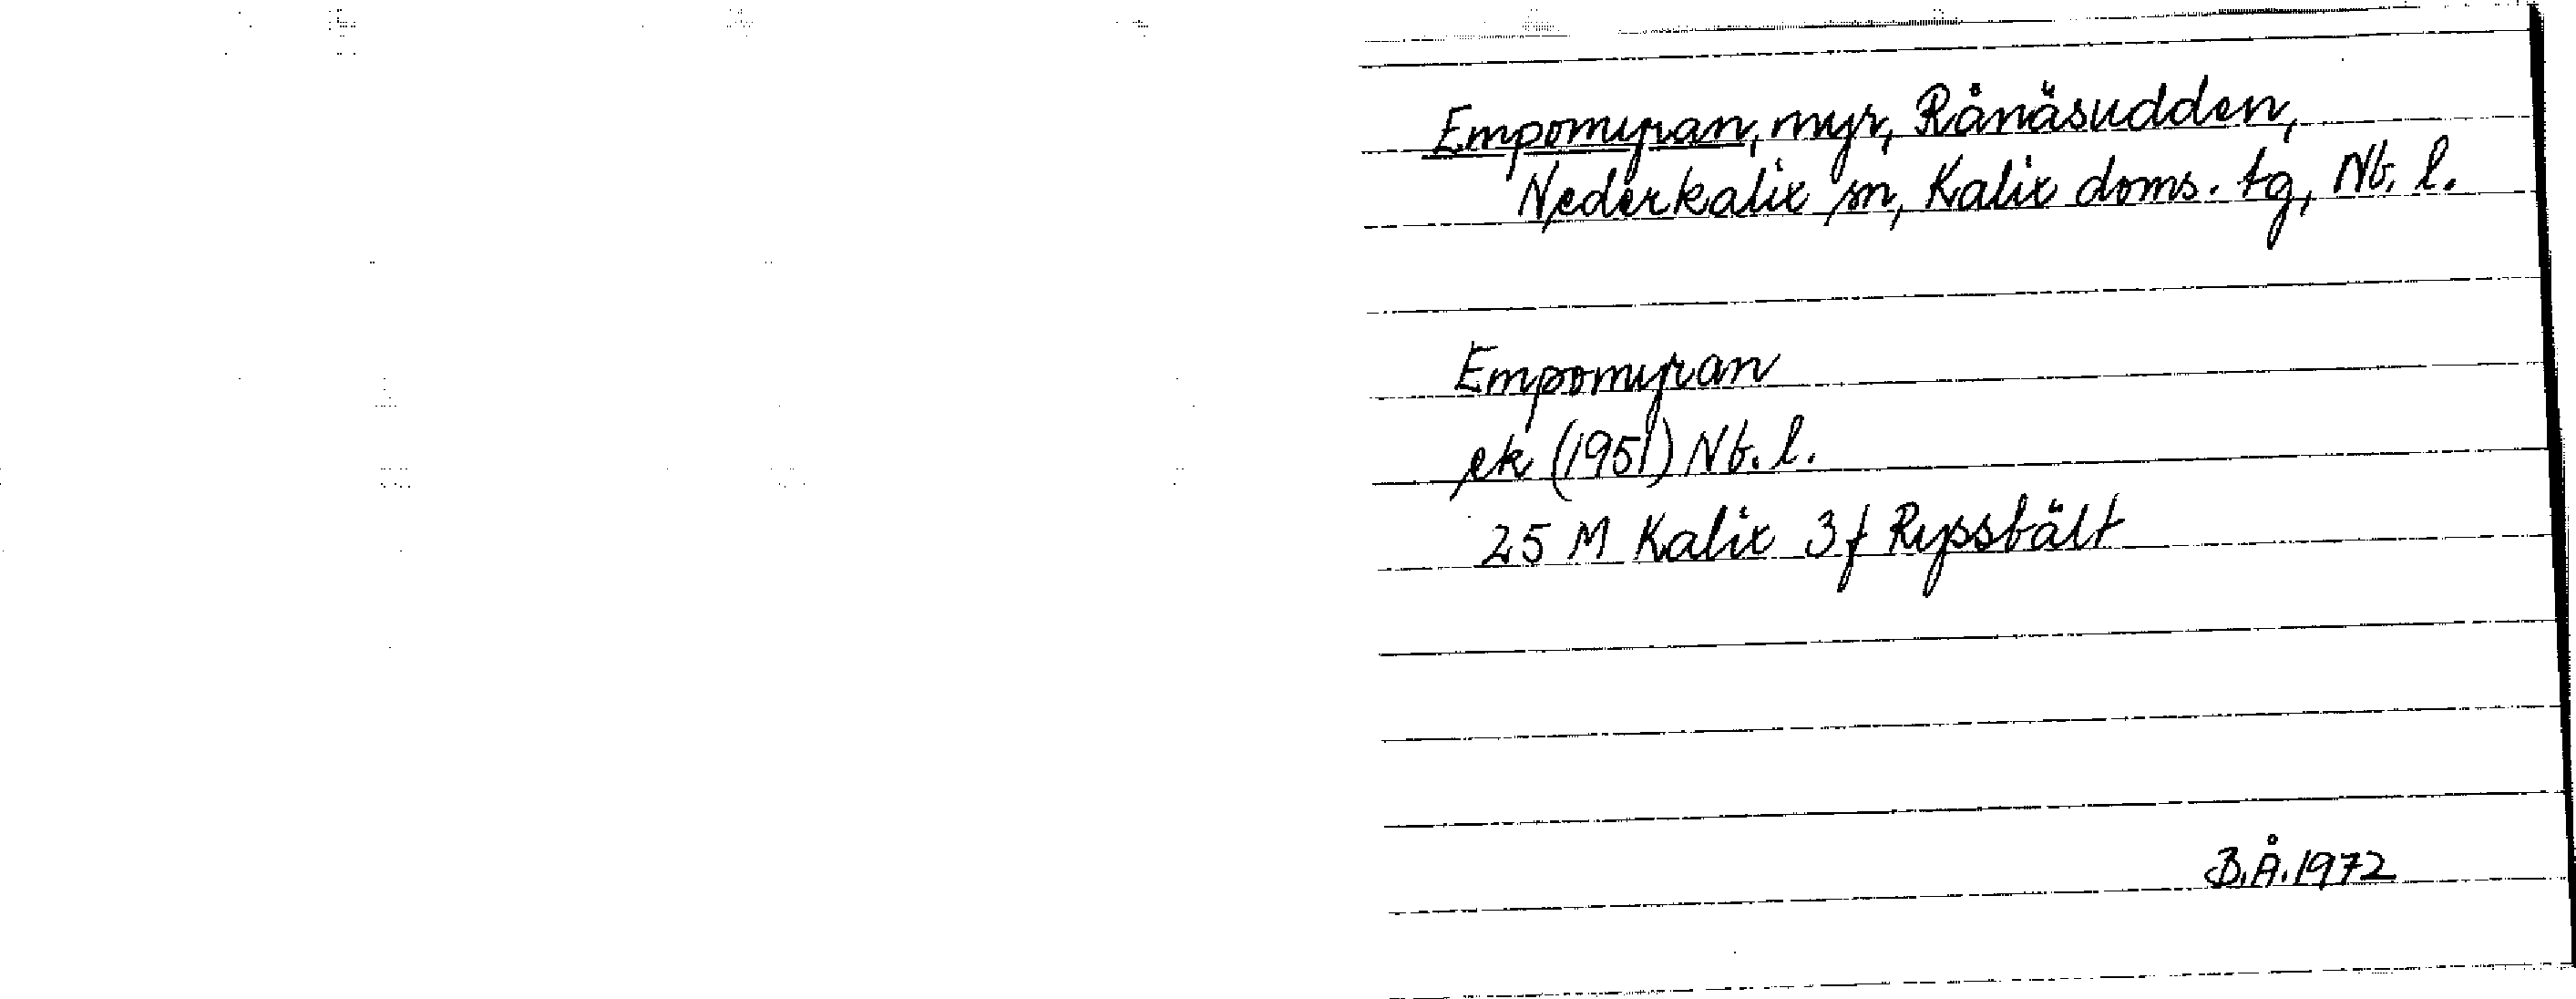 Empomyran, myr, Rånäsudden,
Nederkalix sn, Kalix doms. tg, Nb. l.
Empomyran
ek (1951) Nb. l.
25 M Kalix 3f Ryssbält
B.Å. 1972